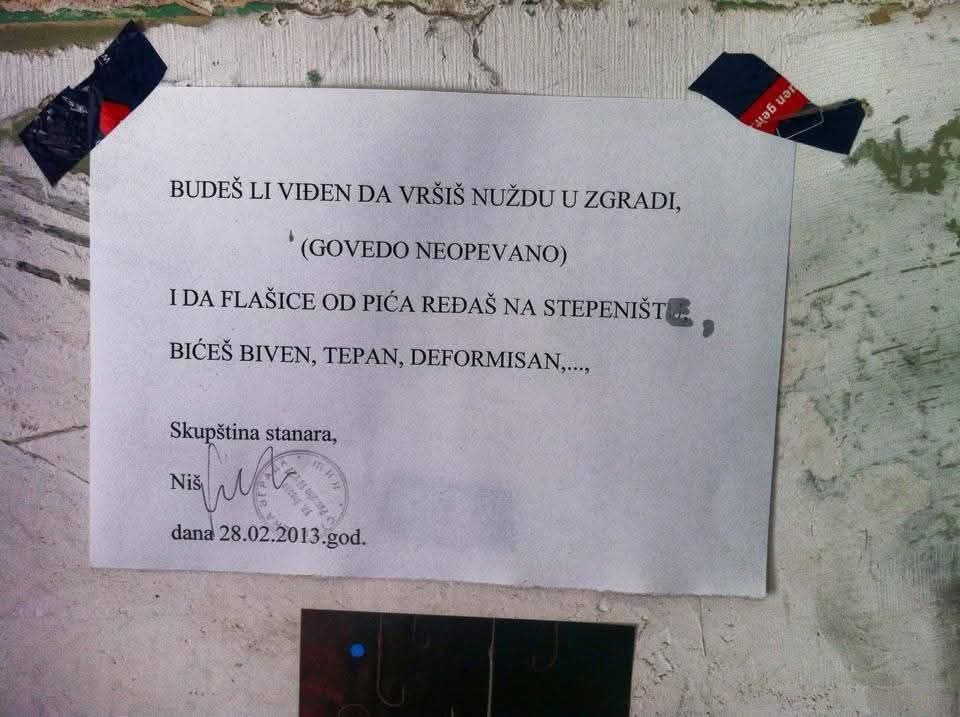 BUDEŠ LI VIĐEN DA VRŠIŠ NUŽDU U ZGRADI,
(GOVEDO NEOPEVANO)
I DA FLAŠICE OD PIĆA REĐAŠ NA STEPENIŠTE,
BIĆEŠ BIVEN, TEPAN, DEFORMISAN,...,
Skupština stanara,
Niš
dana 28.02.2013.god.